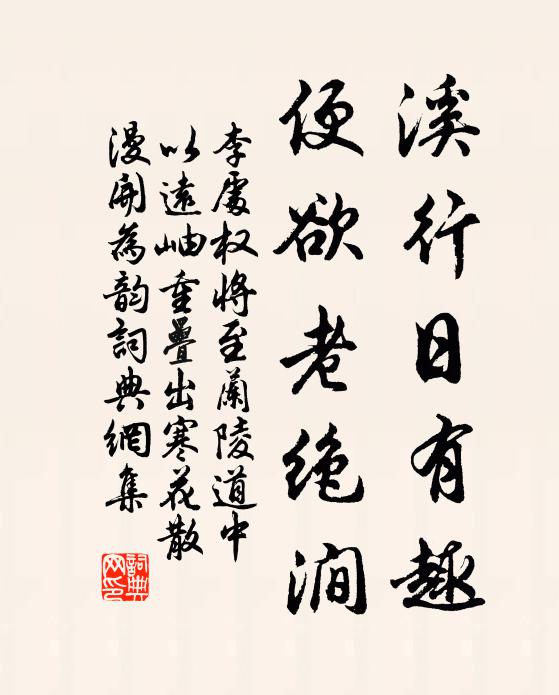 溪行日有趣
便欲老绝涧
李處权將至蘭陵道中
以遠岫重疊出寒花散
漫開為韵詞典網集
詞典
网印